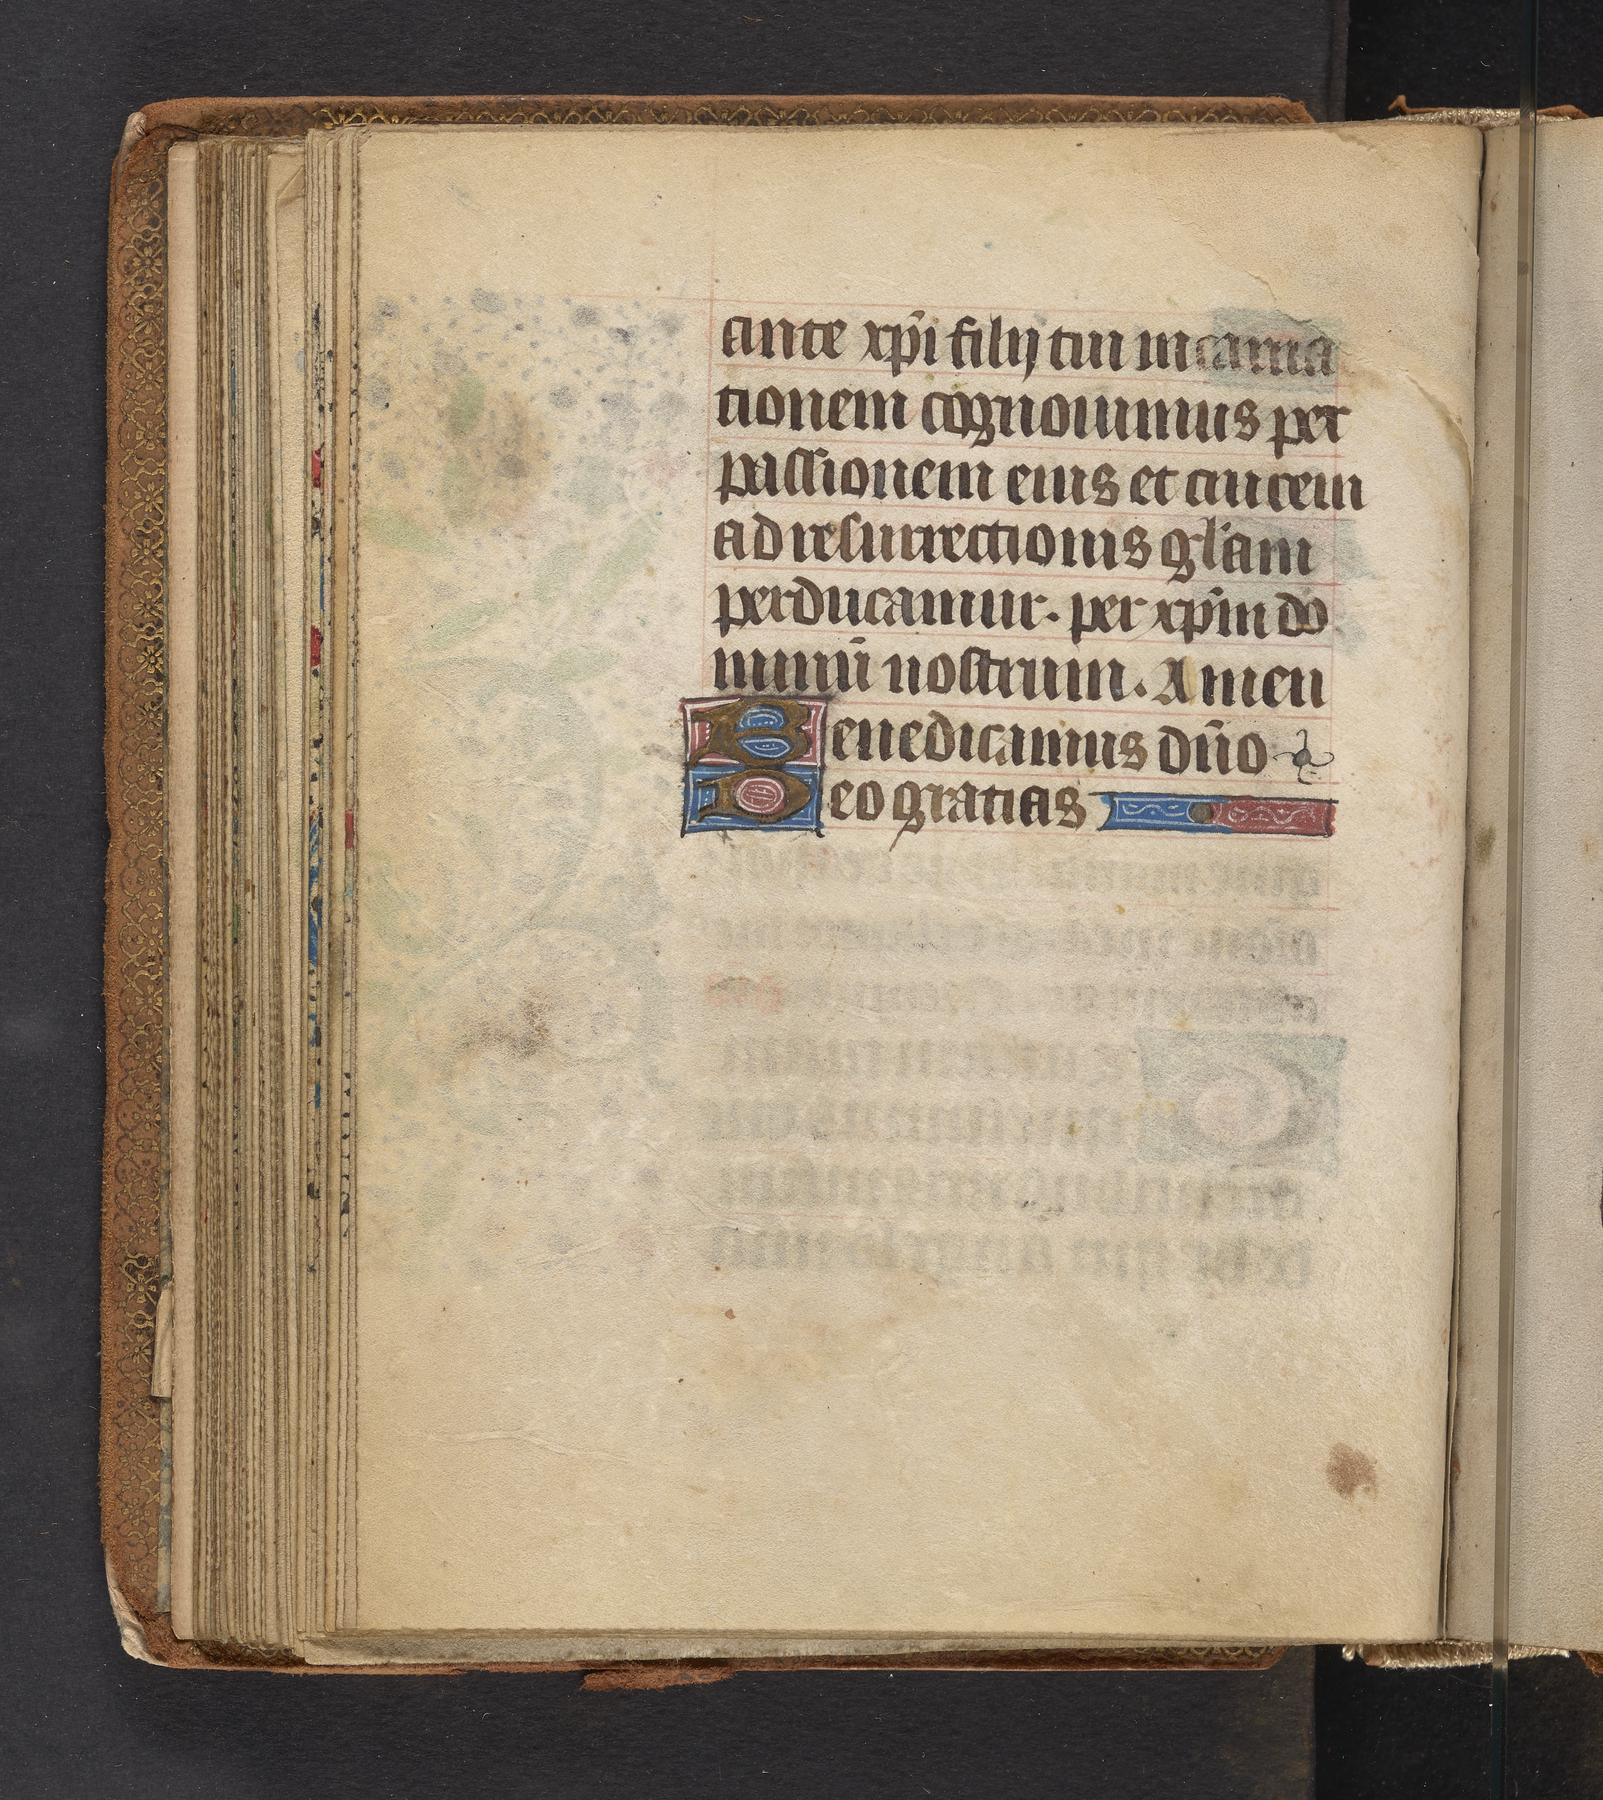 ante xp̄i filij tui incarna
tionem cognouimus per
passionem eius et crucem
ad resurrectionis gl̄am
perducamur. per xp̄m do
minū nostrum. Amen
Benedicamus dño
Deo gratias